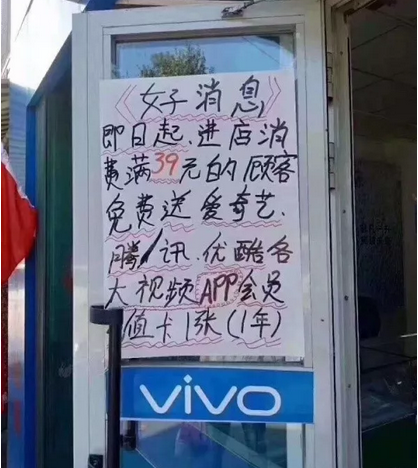 《女子消息》
即日起、进店消
费满39元的顾客
免费送爱奇艺、
腾讯、优酷各
大视频APP会员
值卡1张(1年)
vivo